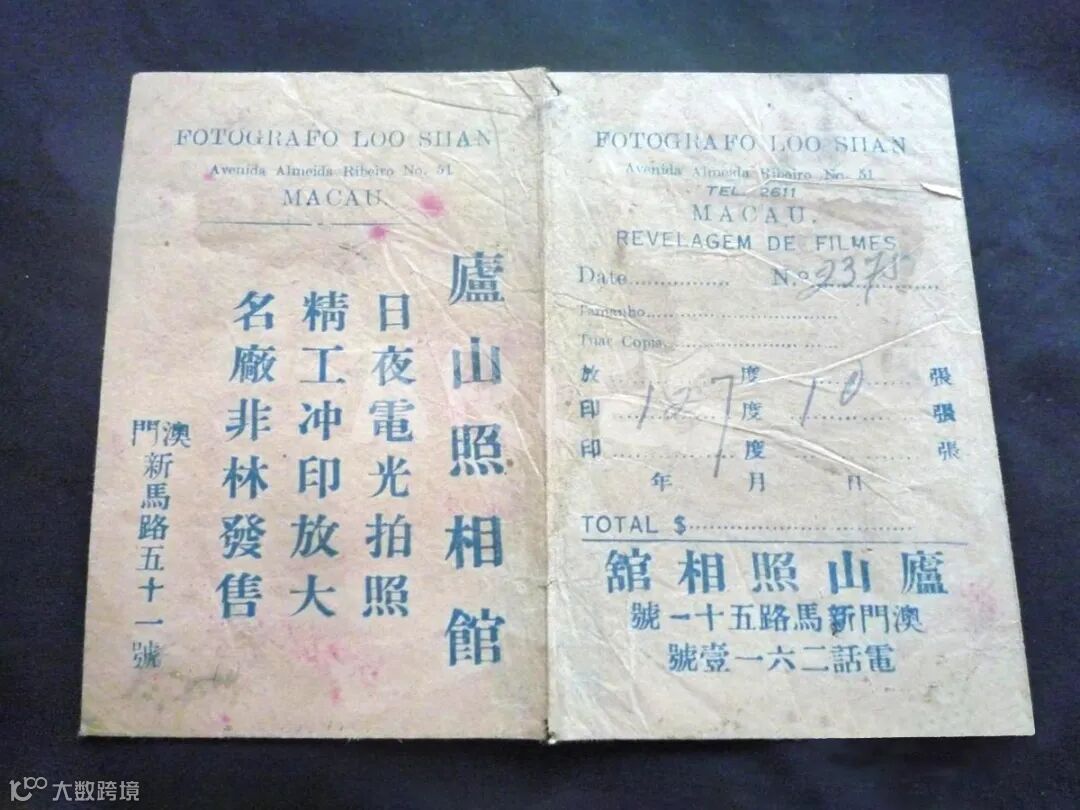 FOTOGRAFO LOO SHAN
Avenida Almeida Ribeiro No. 51
MACAU.
廬山照相館
日夜電光拍照
精工冲印放大
名廠非林發售
澳門新馬路五十一號
FOTOGRAFO LOO SHAN
Avenida Almeida Ribeiro No. 51
TEL. 2611
MACAU.
REVELAGEM DE FILMES
Date.................. N.º 2375
Tamanho
Tirar Copia
放 度 張
印 127 度 10 張
印 度 張
年 月 日
TOTAL $
廬山照相舘
澳門新馬路五十一號
電話二六一壹號
大数跨境